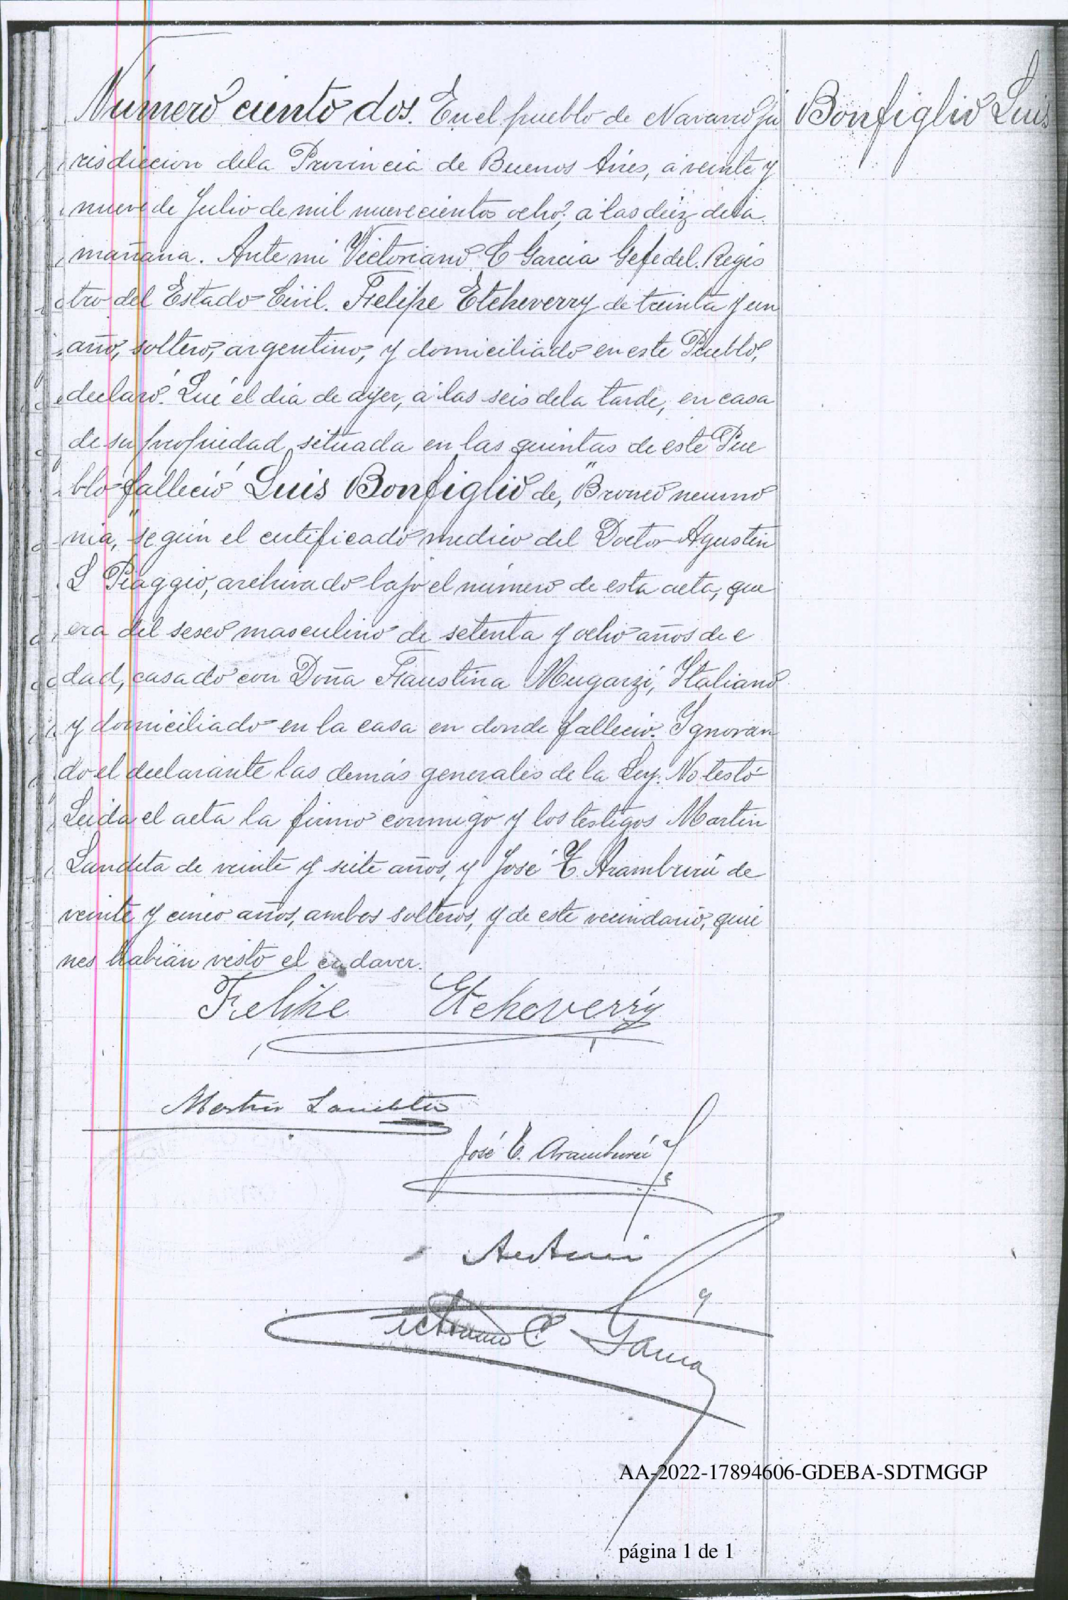 Número ciento dos. En el pueblo de Navarro ju
Bonfiglio Luis
risdiccion dela Provincia de Buenos Aires, a veinte y
nueve de Julio de mil nuevecientos ocho, a las diez dela
mañana. Ante mi Victoriano C Garcia Gefe del Regis
tro del Estado Civil. Felipe Etcheverry de treinta y un
año, soltero, argentino, y domiciliado en este Pueblo,
declaró: Que el dia de ayer, a las seis dela tarde, en casa
de su propiedad, situada en las quintas de este Pue
blo falleció Luis Bonfiglio de, "Bronco neumo
nia," según el certificado medico del Doctor Agustin
L Piaggio, archivado bajo el número de esta acta, que
era del sexo masculino de setenta y ocho años de e
dad, casado con Doña Faustina Mugarzi, Italiano
y domiciliado en la casa en donde falleció. Ignoran
do el declarante las demás generales de la Ley. No testó
Leida el acta la firmó conmigo y los testigos Martin
Landeta de veinte y siete años, y José E. Aramburú de
veinte y cinco años, ambos solteros, y de este vecindario, quie
nes habian visto el cadaver.
Felipe Etcheverry
Martin Landeta
José E. Aramburú
Ante mi
Victoriano C. Garcia
AA-2022-17894606-GDEBA-SDTMGGP
página 1 de 1